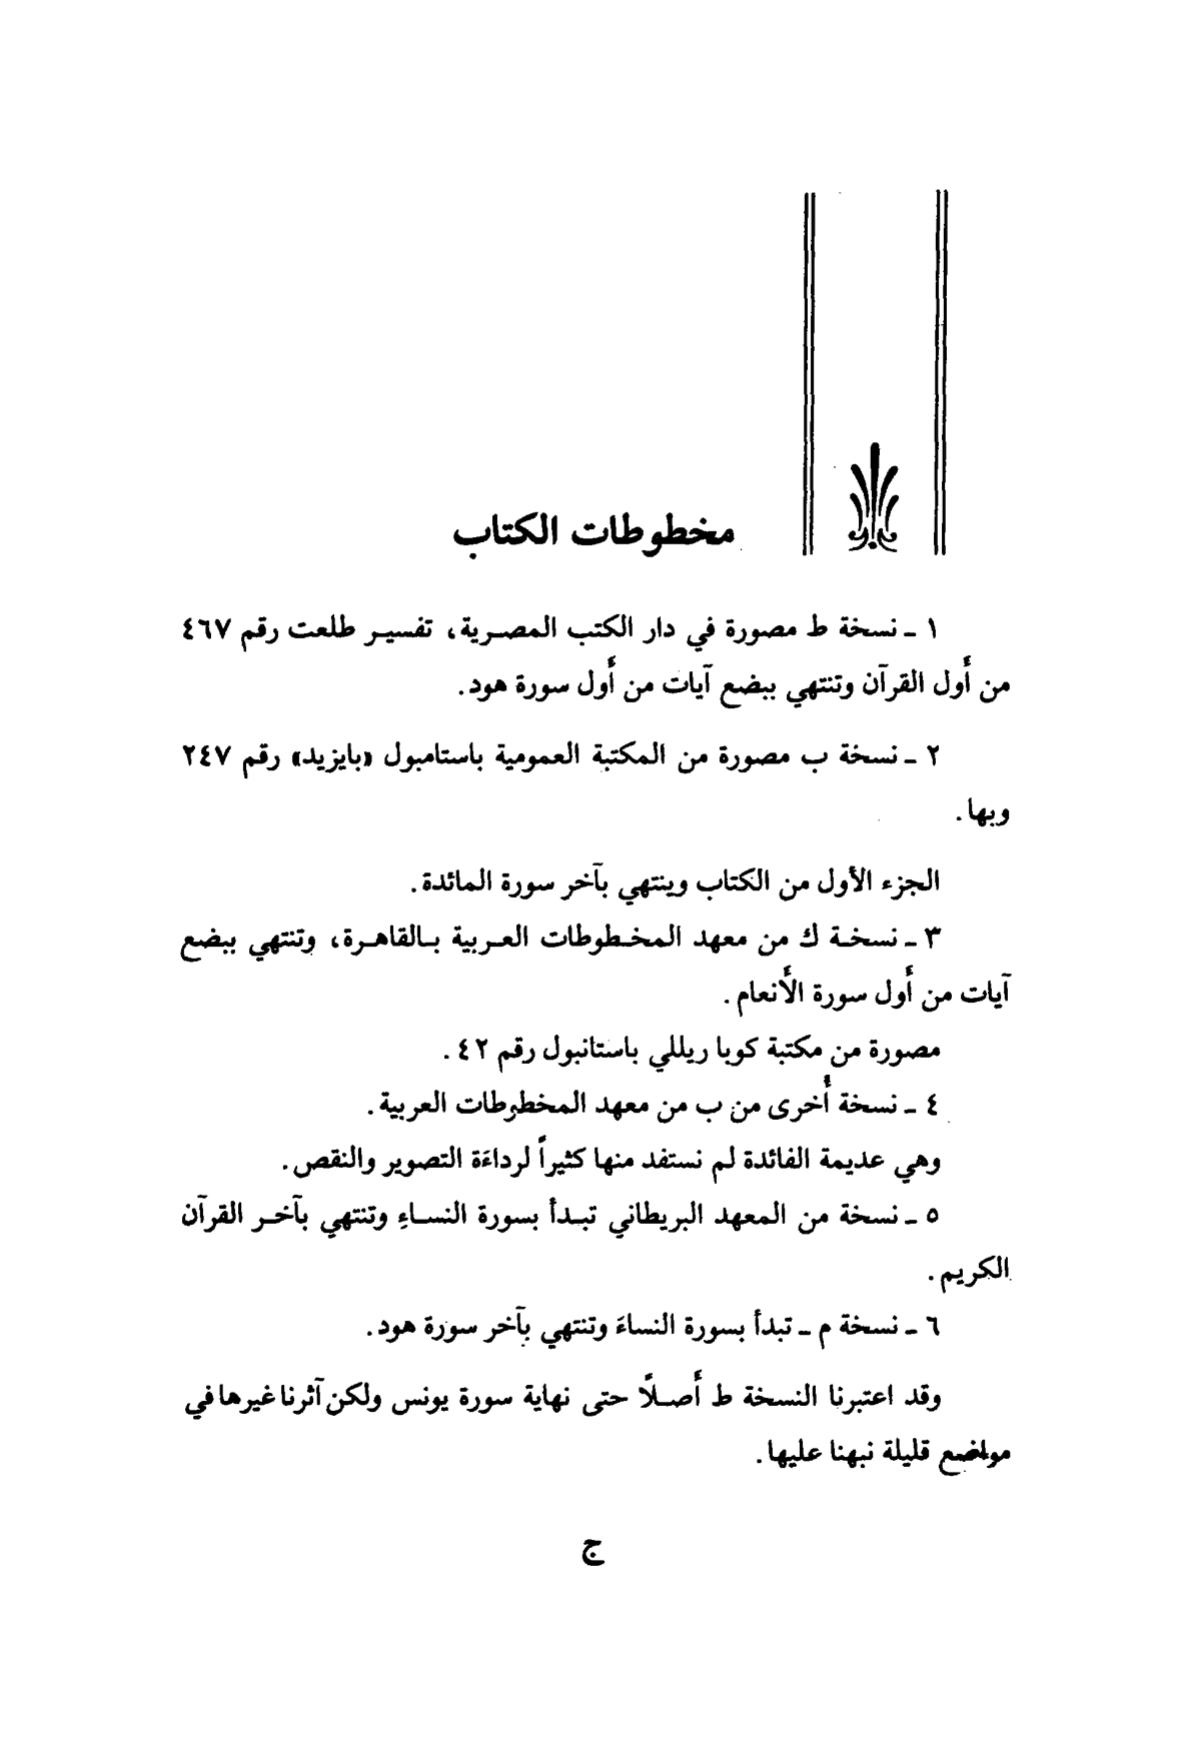 مخطوطات الكتاب
١ ـ نسخة ط مصورة في دار الكتب المصرية، تفسير طلعت رقم ٤٦٧
من أَول القرآن وتنتهي ببضع آيات من أَول سورة هود.
٢ ـ نسخة ب مصورة من المكتبة العمومية باستامبول «بايزيد» رقم ٢٤٧
وبها.
الجزء الأول من الكتاب وينتهي بآخر سورة المائدة.
٣ ـ نسخة ك من معهد المخطوطات العربية بالقاهرة، وتنتهي ببضع
آيات من أَول سورة الأَنعام.
مصورة من مكتبة كوبا ريللي باستانبول رقم ٤٢.
٤ ـ نسخة أُخرى من ب من معهد المخطوطات العربية.
وهي عديمة الفائدة لم نستفد منها كثيراً لرداءَة التصوير والنقص.
٥ ـ نسخة من المعهد البريطاني تبدأ بسورة النساءِ وتنتهي بآخر القرآن
الكريم.
٦ ـ نسخة م ـ تبدأ بسورة النساءَ وتنتهي بآخر سورة هود.
وقد اعتبرنا النسخة ط أَصلًا حتى نهاية سورة يونس ولكن آثرنا غيرها في
مواضع قليلة نبهنا عليها.
ج